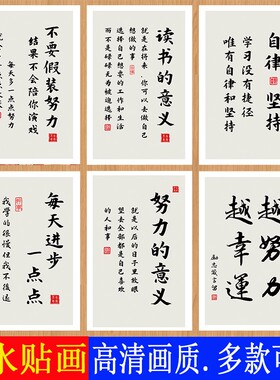 不要假装努力
结果不会陪你演戏
每天多一点点努力
读书的意义
就是在将来 你可以去做自己
想做的事
选择自己想要的工作和生活
而不是碌碌无为被迫选择
自律 坚持
学习没有捷径
唯有自律和坚持
每天进步
一点点
我学的很慢但我不后退
努力的意义
就是以后的日子里放眼
望去全部都是自己喜欢
的人和事
越努力
越幸運
励志箴言
水贴画 高清画质 多款可